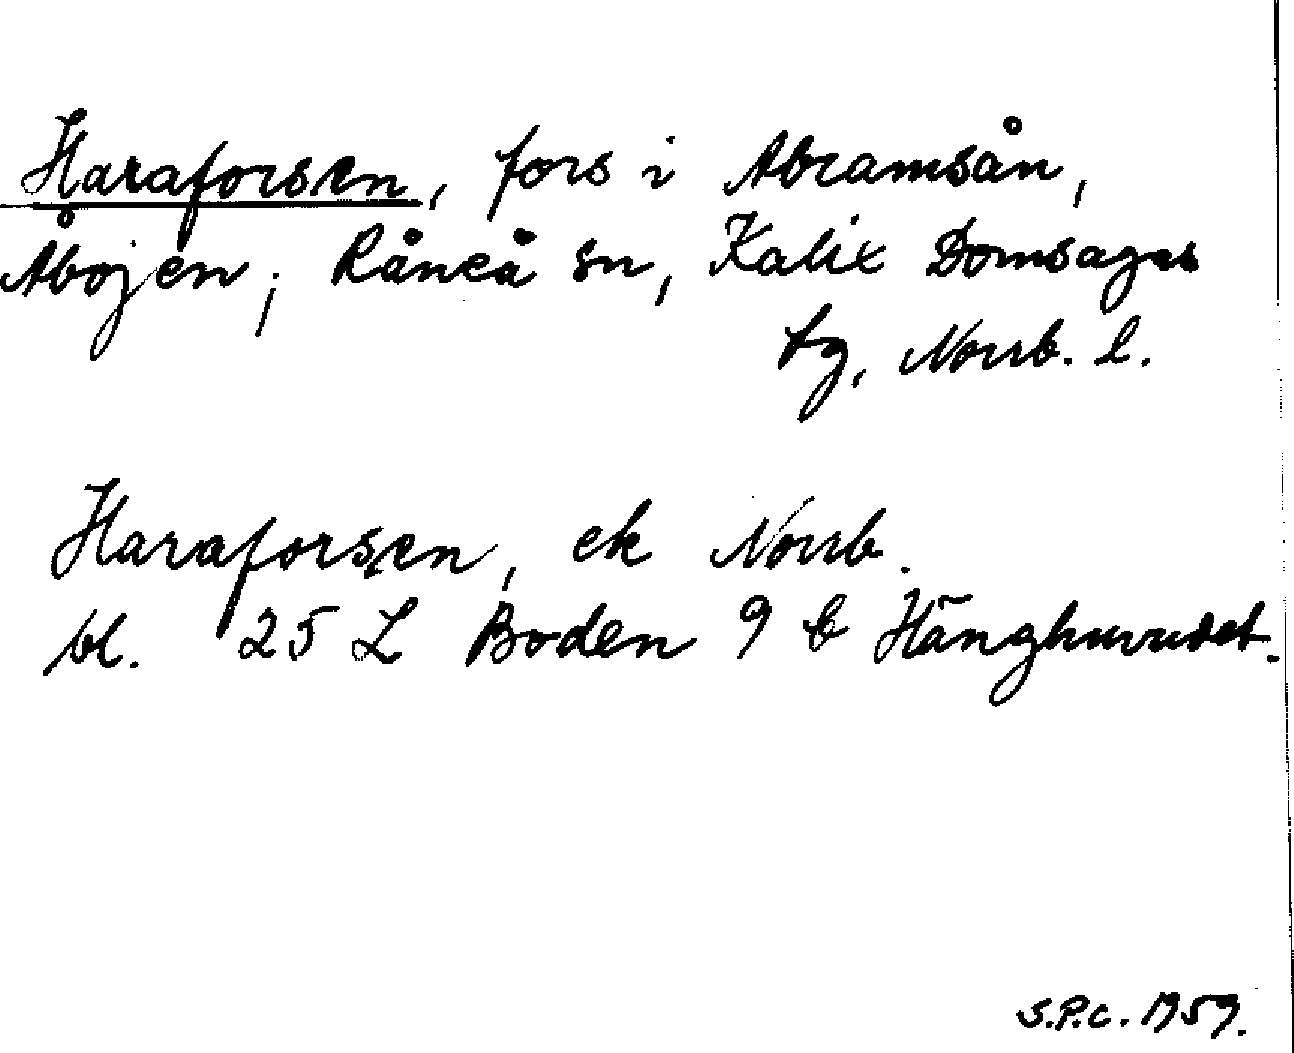 Haraforsen, fors i Abramsån,
Åbojen, Råneå sn, Kalix Domsagas
tg, Norrb. l.
Haraforsen, ek Norrb.
bl. 25 L Boden 9 b Hänghuvudet.
S.P.C. 1959.